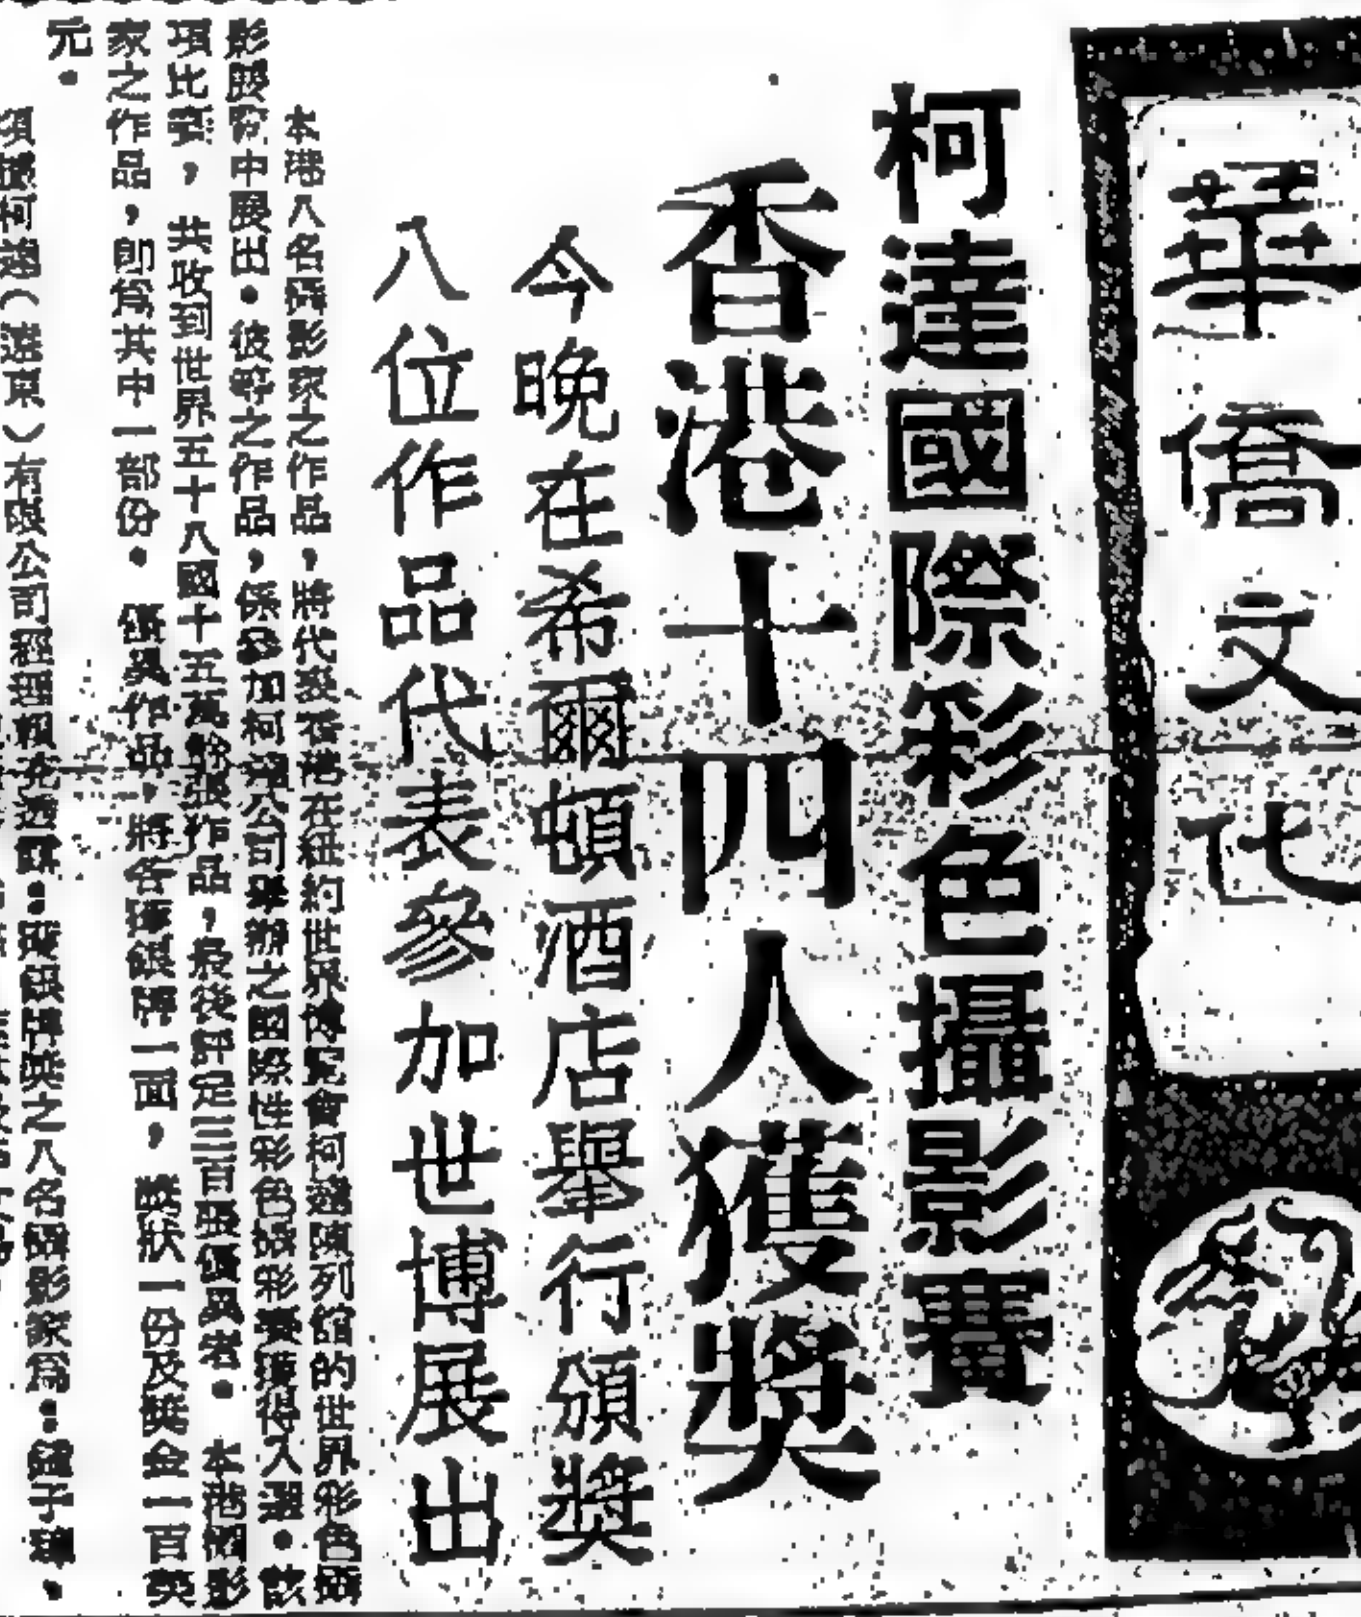 華僑文化
柯達國際彩色攝影賽
香港十四人獲獎
今晚在希爾頓酒店舉行頒獎
八位作品代表參加世博展出
本港八名攝影家之作品,將代表香港在紐約世界博覽會柯達陳列館的世界彩色攝
影展覽中展出。彼等之作品,係參加柯達公司舉辦之國際性彩色攝影賽獲得入選。該
項比賽,共收到世界五十八國十五萬餘張作品,最後評定三百張優異者。本港攝影
家之作品,即為其中一部份。優異作品,將各獲銀牌一面,獎狀一份及獎金一百英
元。
柯達(遠東)有限公司經理 八名攝影家為: